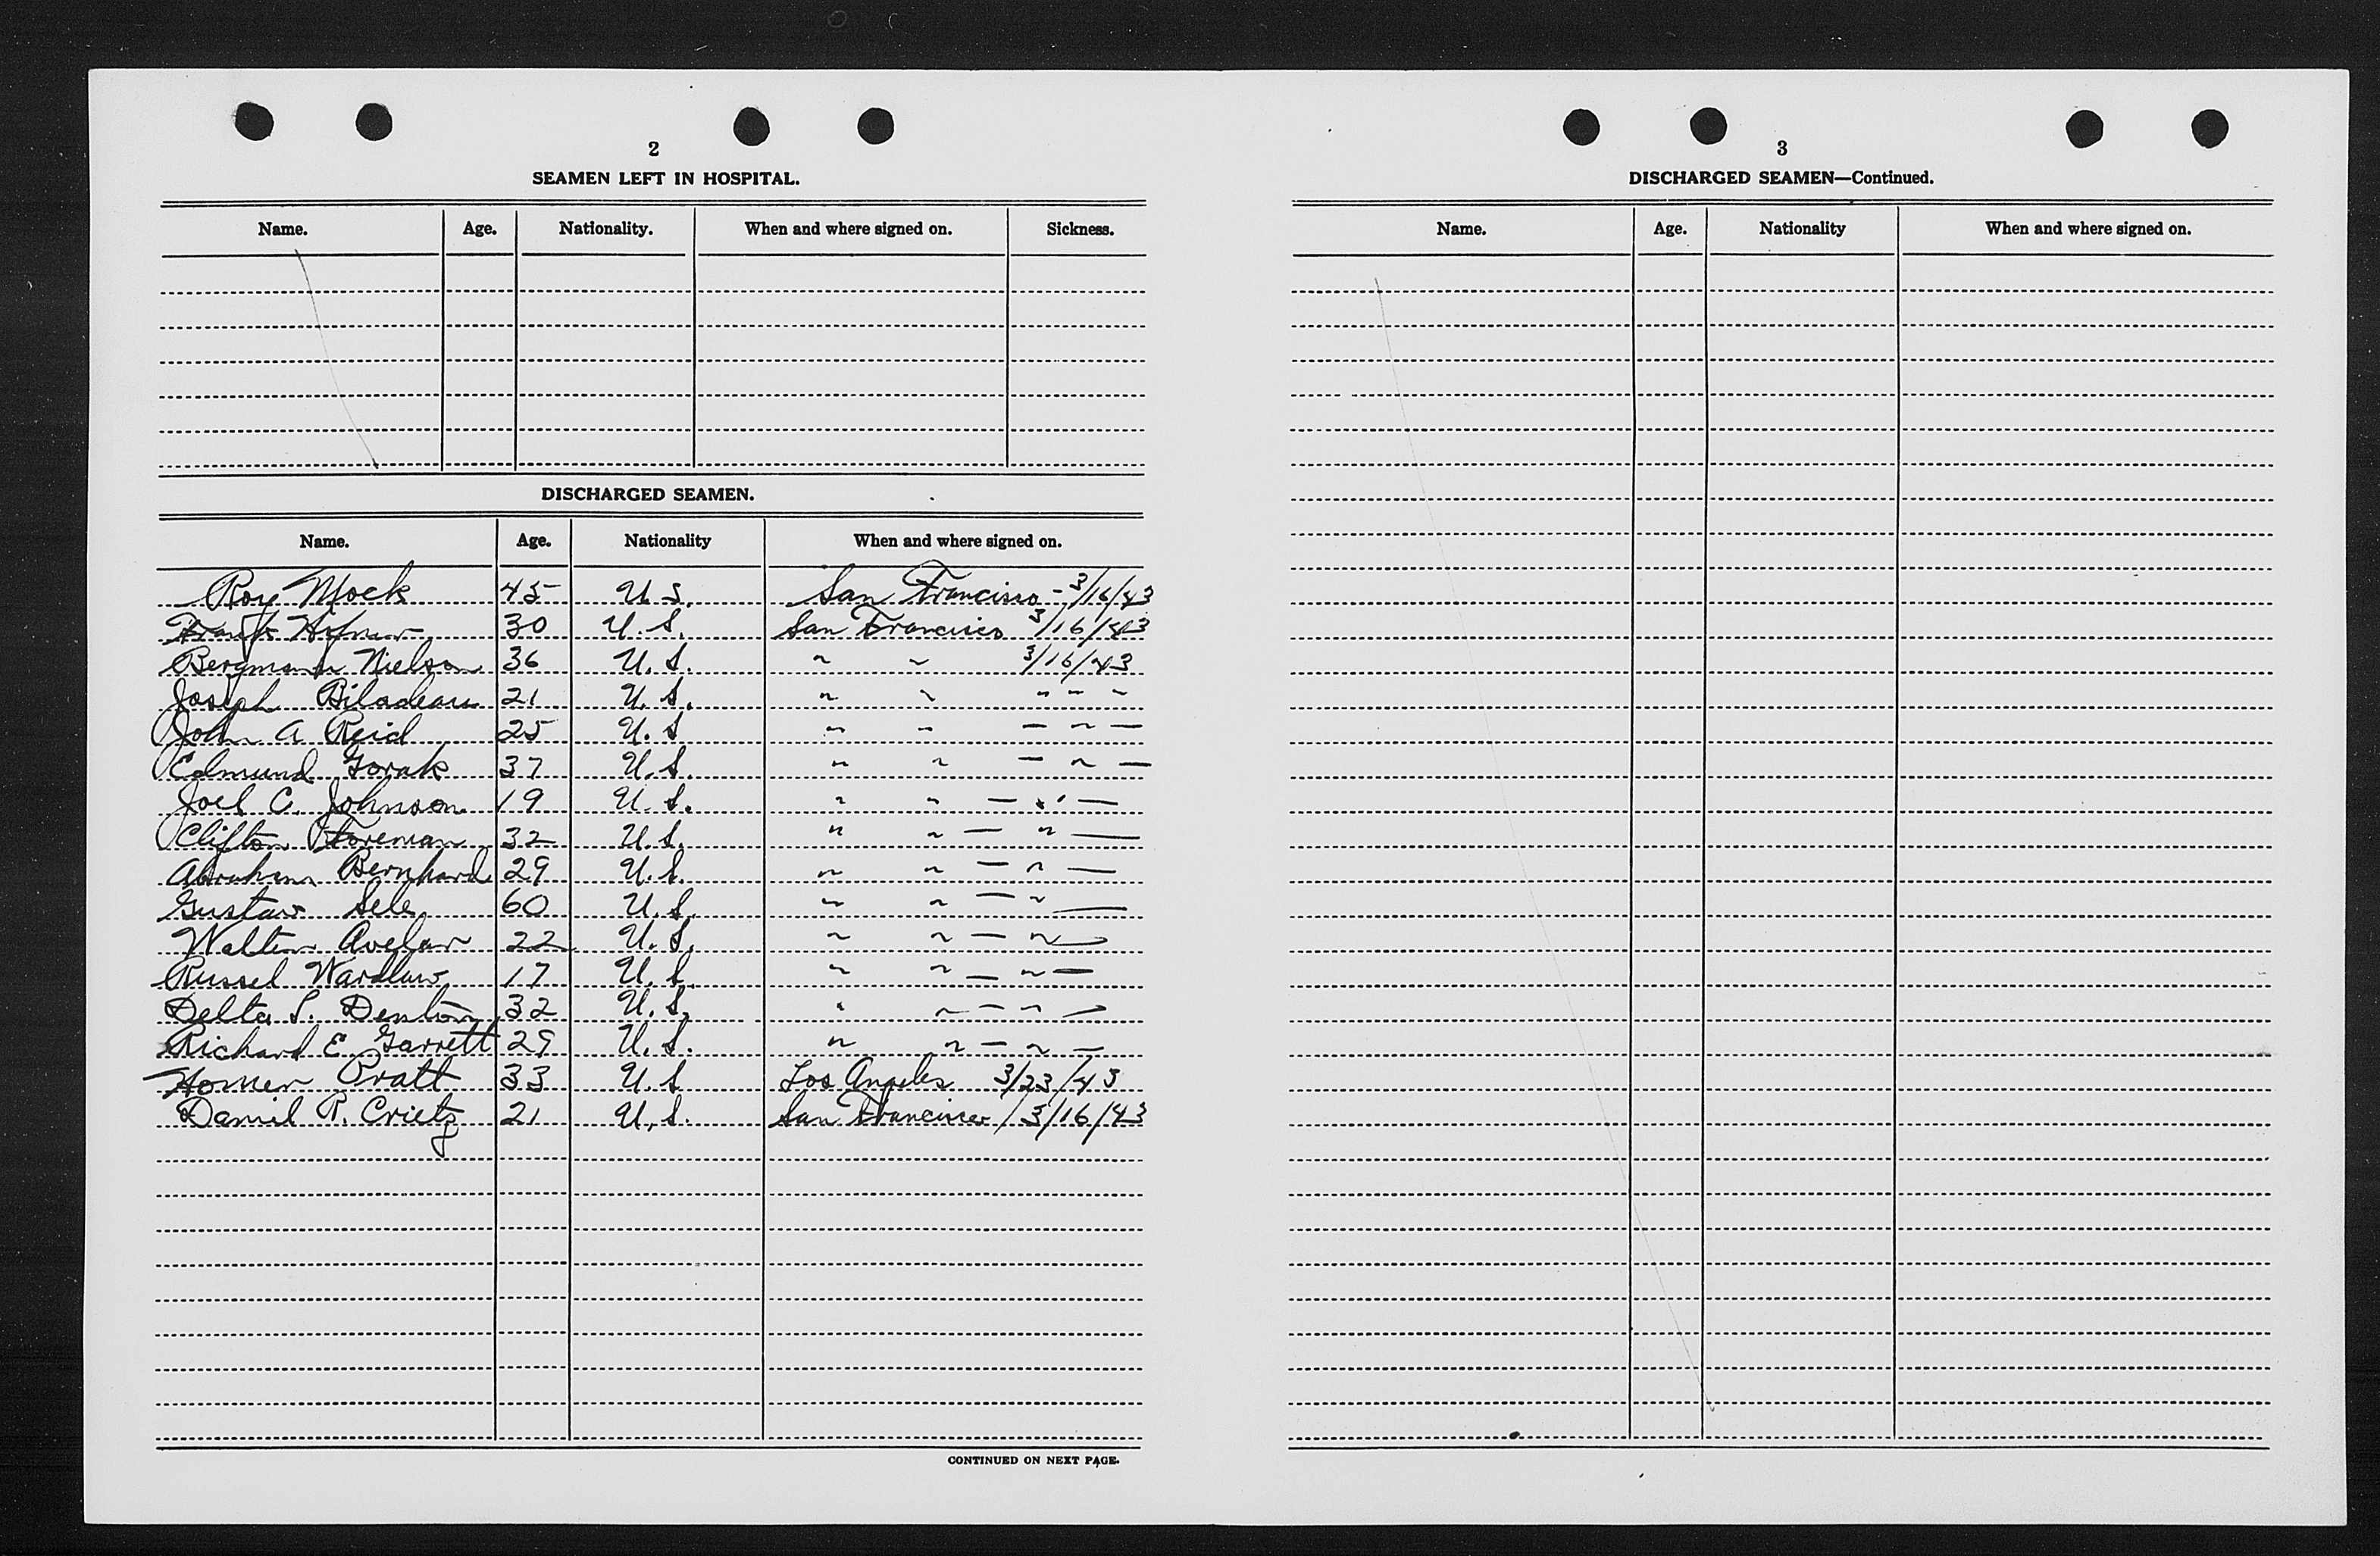 2
SEAMEN LEFT IN HOSPITAL.
Name. Age. Nationality. When and where signed on. Sickness.
DISCHARGED SEAMEN.
Name. Age. Nationality When and where signed on.
Roy Mock 45 U.S. San Francisco - 3/16/43
Frank 30 U.S. San Francisco 3/16/43
Bergmann Nielson 36 U.S. " " 3/16/43
Joseph Biladeau 21 U.S. " " " " "
John A Reid 25 U.S " " — " —
Edmund Gorak 37 U.S. " " — " —
Joel C. Johnson 19 U.S. " " — " —
Clifton Foreman 32 U.S. " " — " —
Abraham Bernhard 29 U.S. " " — " —
Gustav Sele 60 U.S. " " — " —
Walter Avelar 22 U.S. " " — " —
Russel Wardlaw 17 U.S. " " — " —
Delta S. Denton 32 U.S. " " — " —
Richard E. Garrett 29 U.S. " " — " —
Homer Pratt 33 U.S Los Angeles 3/23/43
Daniel R. Crietz 21 U.S. San Francisco / 3/16/43
CONTINUED ON NEXT PAGE.
3
DISCHARGED SEAMEN—Continued.
Name. Age. Nationality When and where signed on.